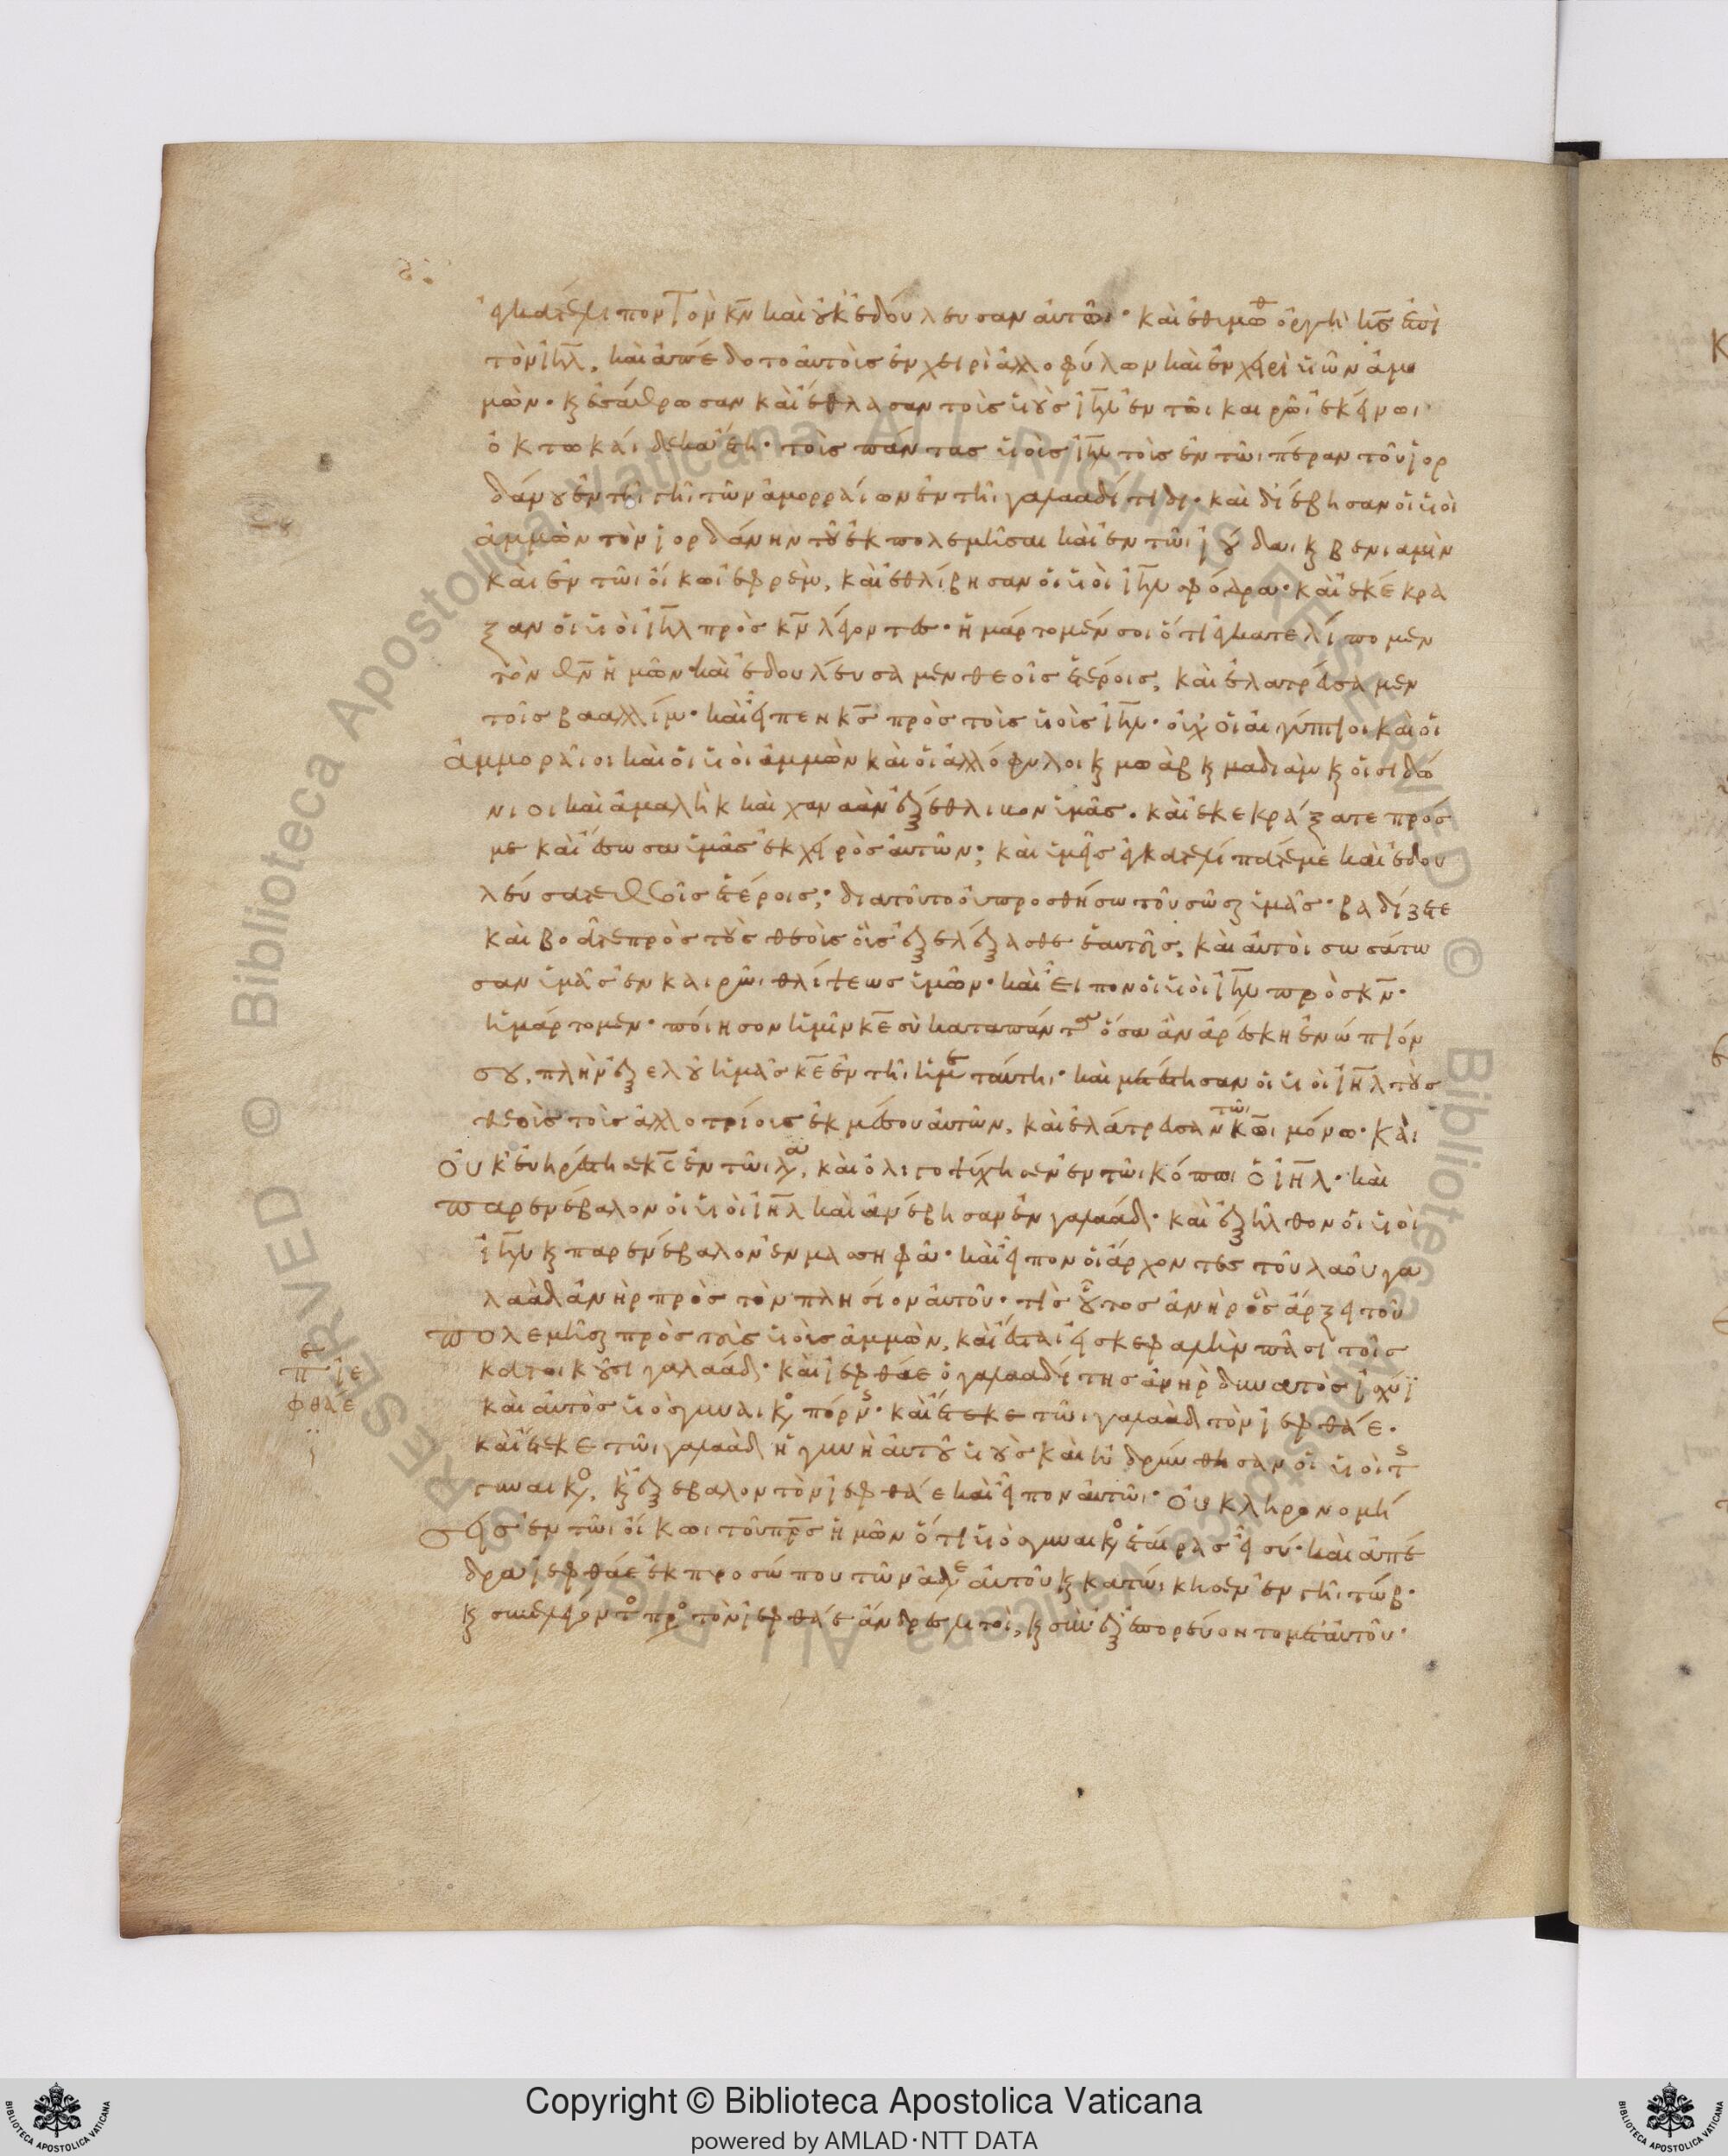 ἐγκατέλιπον τὸν κ̅ν̅ καὶ οὐκ ἐδούλευσαν ἀυτῶι· καὶ ἐθυμώθ ὀργὴ κ̅ς̅ ἐπὶ
τὸν ι̅η̅λ̅, καὶ ἀπέδοτο ἀυτοὺς ἐν χειρὶ ἀλλοφύλων καὶ ἐν χειρὶ υἱῶν ἀμ
μὼν· κ ἐσάθρωσαν καὶ ἔθλασαν τοὺς υἱοὺς ι̅η̅λ̅ ἐν τῶι καιρῶι ἐκείνωι
ὀκτωκαίδεκα ἔτη· τοὺς πάντας υἱοὺς ι̅η̅λ̅ τοὺς ἐν τῶι πέραν τοῦ ἰορ
δάνου ἐν τῆι γῆι τῶν ἀμορραίων ἐν τῆι γαλααδίτιδι· καὶ διέβησαν οἱ υἱοὶ
ἀμμὼν τὸν ἰορδάνην τοῦ ἐκπολεμῆσαι καὶ ἐν τῶι ἰούδαι κ βενιαμὶν
καὶ ἐν τῶι οἴκωι ἐφρεὶμ, καὶ ἐθλίβησαν οἱ υἱοὶ ι̅η̅λ̅ σφόδρα· καὶ ἐκέκρα
ξαν οἱ υἱοὶ ι̅η̅λ̅ πρὸς κ̅ν̅ λέγοντες· ἡμάρτομέν σοι ὅτι ἐγκατελίπομεν
τὸν θ̅ν̅ ἡμῶν καὶ ἐδουλεύσαμεν θεοῖς ἑτέροις, καὶ ἐλατρεύσαμεν
τοῖς βααλλίμ· καὶ εἶπεν κ̅ς̅ πρὸς τοὺς υἱοὺς ι̅η̅λ̅· οὐχ οἱ αἰγύπτιοι καὶ οἱ
ἀμμοραῖοι καὶ οἱ υἱοὶ ἀμμὼν καὶ οἱ ἀλλόφυλοι κ μωὰβ κ μαδιὰμ κ οἱ σιδώ
νιοι καὶ ἀμαλὴκ καὶ χαναὰν ἐξέθλιψαν ὑμᾶς. καὶ ἐκεκράξατε πρός
με καὶ ἔσωσα ὑμᾶς ἐκ χειρὸς ἀυτῶν; καὶ ὑμεῖς ἐγκατελίπατέ με καὶ ἐδου
λεύσατε θεοῖς ἑτέροις; διατοῦτο οὐ προσθήσω τοῦ σῶσαι ὑμᾶς· βαδίζετε
καὶ βοᾶτε πρὸς τοὺς θεοὺς οὓς ἐξελέξασθε ἑαυτοῖς, καὶ ἀυτοὶ σωσάτω
σαν ὑμᾶς ἐν καιρῶι θλίψεως ὑμῶν· καὶ εἶπον οἱ υἱοὶ ι̅η̅λ̅ πρὸς κ̅ν̅·
ἡμάρτομεν· πόιησον ἡμῖν κ̅ε̅ σὺ κατα πάντα ὅσα ἂν ἀρέσκη ἐνώπιόν
σου, πλὴν ἐξελοῦ ἡμᾶς κ̅ε̅ ἐν τῆι ἡμε ταύτηι· καὶ μετέστησαν οἱ υἱοὶ ι̅η̅λ̅ τοὺς
θεοὺς τοὺς ἀλλοτρίους ἐκ μέσου ἀυτῶν, καὶ ἐλάτρευσαν τῶι κ̅ω̅ι μόνω· καὶ
οὐκ ἐυηρέστησε κ̅ς̅ ἐν τῶι λα, καὶ ὀλιγοψύχησεν ἐν τῶι κόπωι ὁ ι̅η̅λ̅· καὶ
παρενέβαλον οἱ υἱοὶ ι̅η̅λ̅ καὶ ἀνέβησαν ἐν γαλαάδ· καὶ ἐξῆλθον οἱ υἱοὶ
ι̅η̅λ̅ κ παρενέβαλον ἐν μασηφά· καὶ εἶπον οἱ ἄρχοντες τοῦ λαοῦ γα
λαὰδ ἀνὴρ πρὸς τὸν πλησίον ἀυτοῦ· τίς οὗτος ἀνὴρ ὃς ἄρξει τοῦ
πολεμῆσαι πρὸς τοὺς υἱοὺς ἀμμὼν, καὶ ἔσται εἰς κεφαλὴν πᾶσι τοῖς
κατοικοῦσι γαλαάδ· καὶ ἰεφθάε ὁ γαλααδίτης ἀνὴρ δυνατὸς ἰσχύϊ
καὶ ἀυτὸς υἱὸς γυναικο πόρνς· καὶ ἔτεκε τῶι γαλαὰδ τὸν ἰεφθάε.
καὶ ἔτεκε τῶι γαλαὰδ ἡ γυνὴ ἀυτοῦ υἱοὺς καὶ ἡδρύνθησαν οἱ υἱοὶ τς
γυναικο, κ ἐξέβαλον τὸν ἰεφθάε καὶ εἶπον ἀυτῶι· οὐ κληρονομή
σεις ἐν τῶι οἴκωι τοῦ π̅ρ̅ς̅ ἡμῶν ὅτι υἱὸς γυναικο ἑταίρας εἶ σύ· καὶ ἀπέ
δρα ἰεφθάε ἐκ προσώπου τῶν ἀδε ἀυτοῦ κ κατώικησεν ἐν γῆι τώβ·
κ συνελέγοντο προ τὸν ἰεφθάε ἄνδρες λιτοὶ, κ συνεξεπορεύοντο μετ ἀυτοῦ·
πε ἰε
φθάε
Copyright © Biblioteca Apostolica Vaticana
powered by AMLAD·NTT DATA